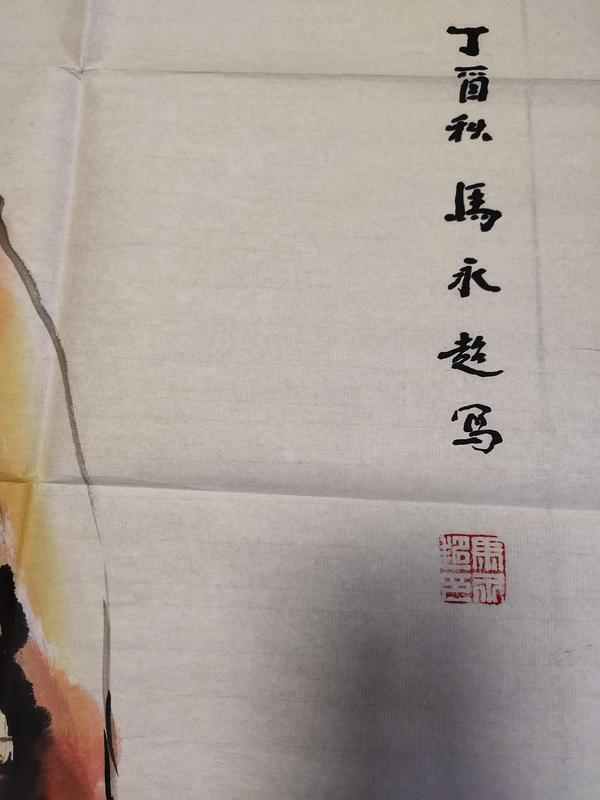 丁酉秋 馬永超写
馬永超印